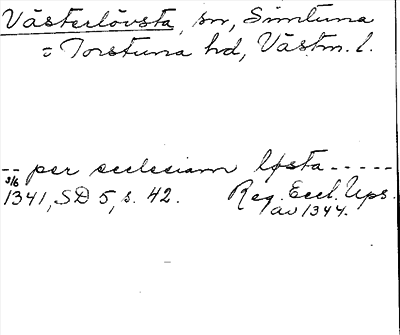 Västerlövsta, sn, Simtuna
= Torstuna hd, Västm. l.
-- per ecclesiam lfsta -----
3/6
1341, SD 5, s. 42. Reg. Eccl. Ups.
av 1344.